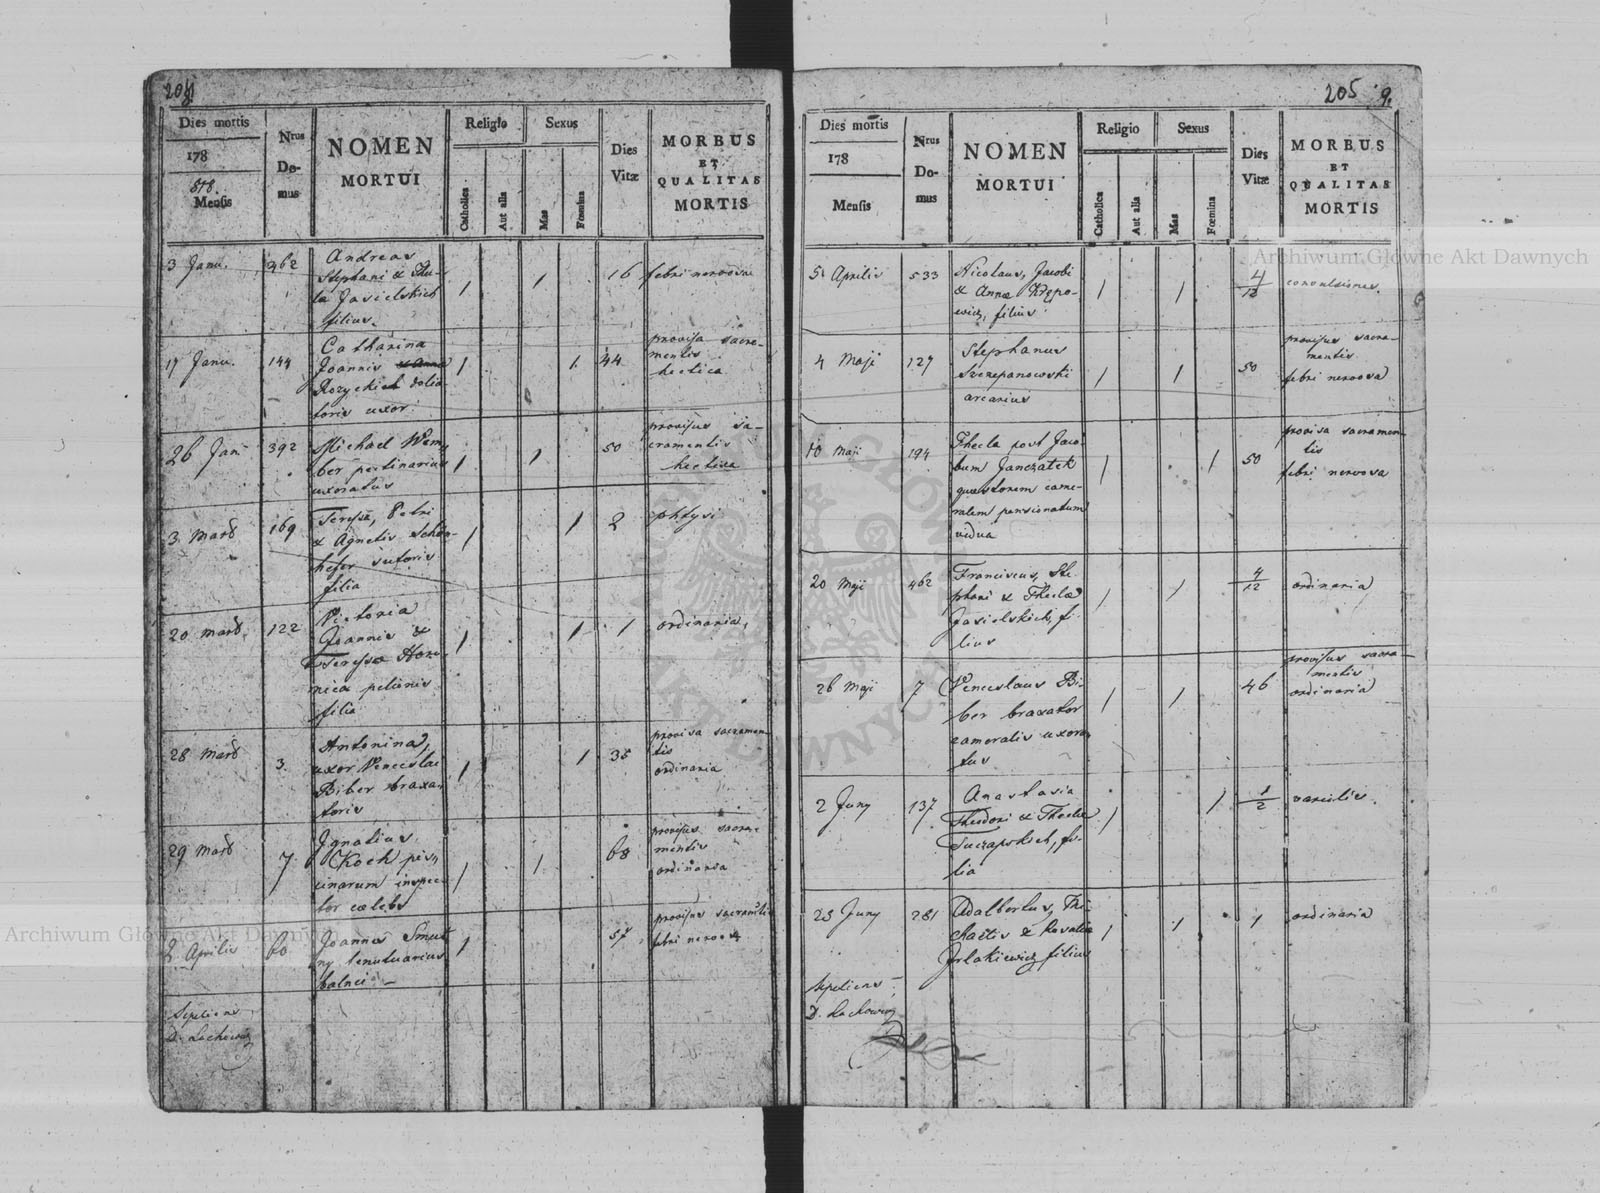 204
Dies mortis
178
518.
Mensis
Nrus
Do-
mus
NOMEN
MORTUI
Religio
Catholica
Aut alia
Sexus
Mas
Fœmina
Dies
Vitæ
MORBUS
ET
QUALITAS
MORTIS
3 Janu.
462
Andreas
Stephani & The-
la Jasielskich
filius.
1
1
16
febri nervosa
17 Janu.
144
Catharina
Joannis & Anna
Rozyckich dolia-
toris uxor.
1
1.
44
provisa sacra-
mentis
hectica
26 Jan
392
Michael Wem
ber pectinarius
uxoratus
1
1
50
provisus sa-
cramentis
hectica
3. Mard
169
Teressa, Petri
& Agnetis Schön-
hefer sutoris
filia
1
1
2
phtysi
20. Mard,
122
Victoria
Joannis &
Teressa
filia
1
1
1
ordinaria,
28 Mard
3.
Antonina,
uxor Venceslai
Biber braxa-
toris
1
1
35
provisa sacramen
tis
ordinaria
29 Mard
7
Ignatius
Koch pis-
cinarum inspec-
tor cælebs
1
1
68
provisus sacra-
mentis
ordinaria
2 Aprilis
60
Joannes Smut
ny
balnei
1
57
provisus sacramtis
febri nervosa
Sepeliens
D. Lachowicz
205 9.
Dies mortis
178
Mensis
Nrus
Do-
mus
NOMEN
MORTUI
Religio
Catholica
Aut alia
Sexus
Mas
Fœmina
Dies
Vitæ
MORBUS
ET
QUALITAS
MORTIS
5 Aprilis
533
Nicolaus, Jacobi
& Annæ
wicz, filius
1
1
4/12
convulsiones.
4 Maji
127
Stephanus
Szczepanowski
arcarius
1
1
50
provisus sacra-
mentis
febri nervosa
10 Maji
194
Thecla post Jaco-
bum Janczatek
quæstorem came-
ralem pensionatum
vidua
1
1
50
provisa sacramen
tis
febri nervosa
20 Maji
462
Franciscus, Ste-
phani & Theclæ
Jasielskich, fi-
lius
1
1
4/12
ordinaria
26 Maji
7
Venceslaus Bi-
ber braxator
cameralis uxora-
tus
1
1
46
provisus sacra-
mentis
ordinaria
2 Juny
137
Anastasia
Theodori & Theclæ
Tuczapskich, fi-
lia
1
1
1/2
variolis.
23 Juny
281
Adalbertus, Mi-
chaelis & Rosalia
filius
1
1
1
ordinaria
Sepeliens
D. Lachowicz
Archiwum Główne Akt Dawnych
Archiwum Główne Akt Dawnych
ARCHIWUM GŁÓWNE
AKT DAWNYCH